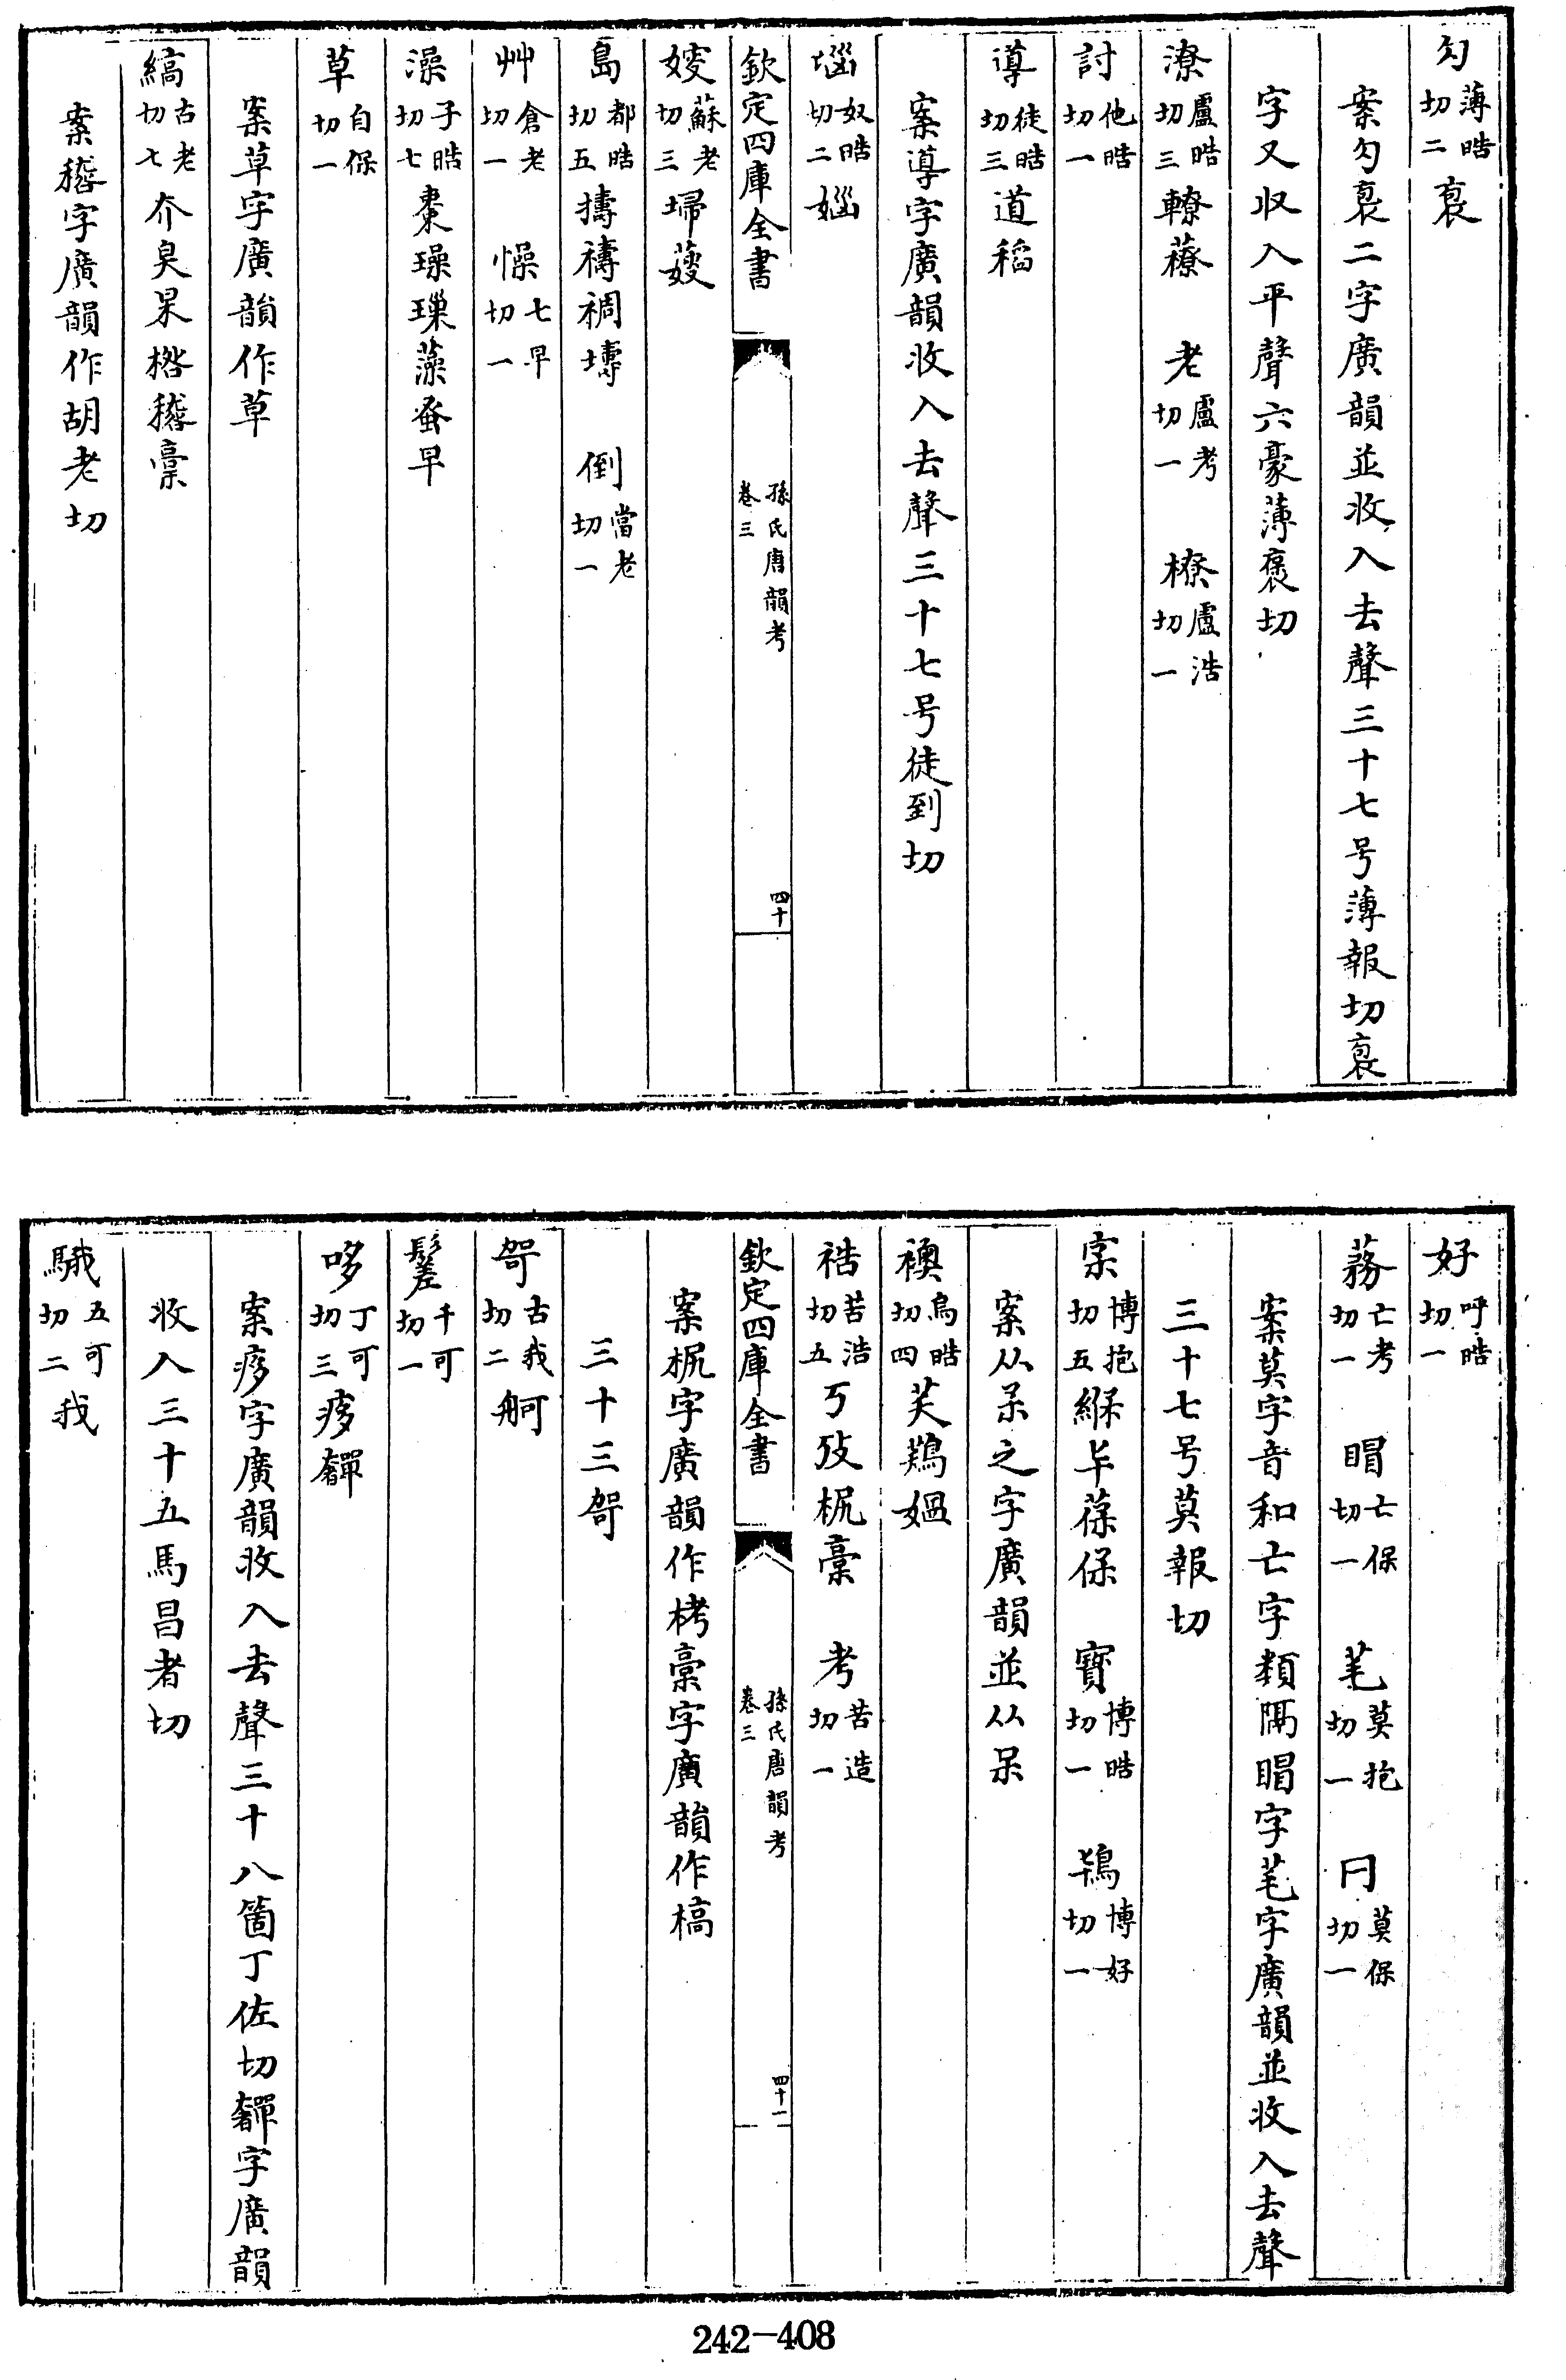 勹薄晧切二袌
案勹袌二字廣韻並收入去聲三十七号薄報切袌
字又収入平聲六豪薄褒切
潦盧晧切三轑藔　老盧考切一　橑盧浩切一
討他晧切一
導徒晧切三道稻
案導字廣韻收入去聲三十七号徒到切
㛴奴晧切二㛴
欽定四庫全書
孫氏唐韻考
卷三
四十
㛮蘇老切三埽薞
島都晧切五擣禱禂壔　倒當老切一
艸倉老切一　懆七早切一
澡子晧切七棗璪璅藻蚤早
草自保切一
案草字廣韻作草
縞古老切七夰臭杲㮯稾
案字廣韻作胡老切
好呼晧切一
蓩亡考切一　㫯亡保切一　芼莫抱切一　冃莫保切一
案莫字音和亡字類隔㫯字芼字廣韻並收入去聲
三十七号莫報切
宲博抱切五緥㐂葆保　寶博晧切一　鴇博好切一
案从𣎼之字廣韻並从呆
襖烏晧切四芺鴹媼
祰苦浩切五丂攷㭱稾　考苦造切一
欽定四庫全書
孫氏唐韻考
卷三
四十一
案㭱字廣韻作栲稾字廣韻作槁
三十三哿
哿古我切二舸
髊千可切一
哆丁可切三痑奲
案痑字廣韻收入去聲三十八箇丁佐切奲字廣韻
收入三十五馬昌者切
騀五可切二我
242-408